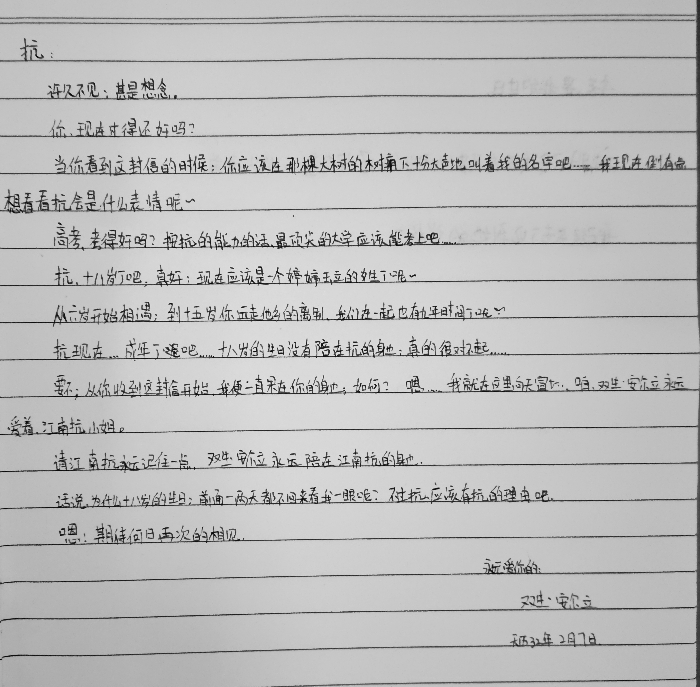 抗：
许久不见；甚是想念。
你、现在过得还好吗？
当你看到这封信的时候；你应该在那棵大树的树梢下十分大声地叫着我的名字吧……我现在倒有点
想看看抗会是什么表情呢~
高考、考得好吗？按抗的能力的话、最顶尖的大学应该能考上吧……
抗、十八岁了吧，真好；现在应该是一个婷婷玉立的女生了呢~
从六岁开始相遇；到十五岁你远走他乡的离别、我们在一起也有九年时间了呢~
抗现在…成年了呢吧……十八岁的生日没有陪在抗的身边；真的很对不起……
要不；从你收到这封信开始、我便一直呆在你的身边；如何？嗯……我就在这里向天冒 咱、双生·安尔立永远
爱着、江南抗小姐。
请江南抗永远记住一点、双生·安尔立永远陪在江南抗的身边.
话说、为什么十八岁的生日；前面一两天都不回来看我一眼呢？不过抗、应该有抗的理由吧.
嗯；期待何日再次的相见.
永远爱你的：
双生·安尔立
天历32年2月7日